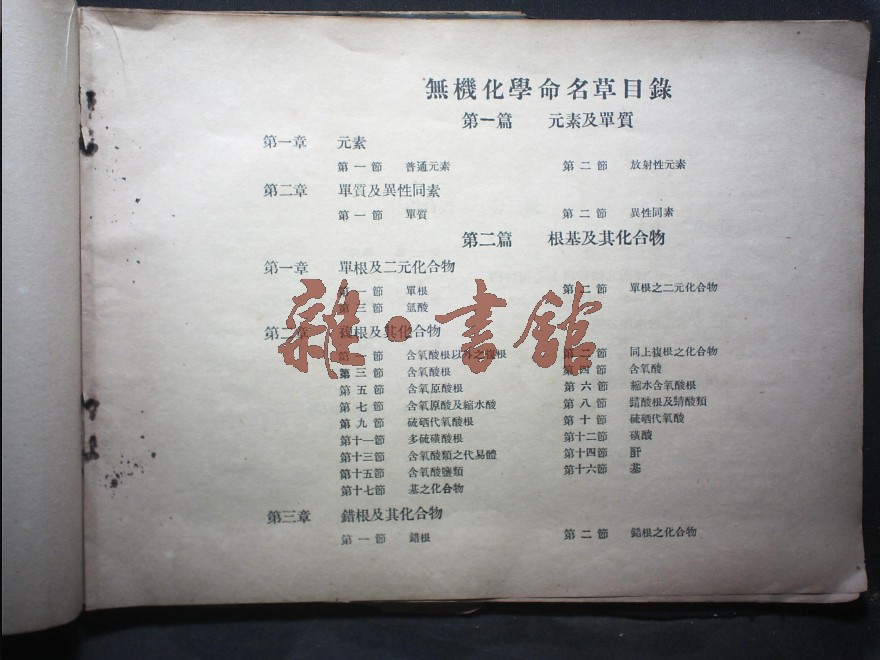 無機化學命名草目錄
第一篇 元素及單質
第一章 元素
第一節 普通元素 第二節 放射性元素
第二章 單質及異性同素
第一節 單質 第二節 異性同素
第二篇 根基及其化合物
第一章 單根及二元化合物
第一節 單根 第二節 單根之二元化合物
第三節 氫酸
第二章 複根及其化合物
第一節 含氧酸根以外之複根 第二節 同上複根之化合物
第三節 含氧酸根 第四節 含氧酸
第五節 含氧原酸根 第六節 縮水含氧酸根
第七節 含氧原酸及縮水酸 第八節 酸根及酸類
第九節 硫硒代氧酸根 第十節 硫硒代氧酸
第十一節 多硫磺酸根 第十二節 磺酸
第十三節 含氧酸類之代易體 第十四節 酐
第十五節 含氧酸鹽類 第十六節 基
第十七節 基之化合物
第三章 錯根及其化合物
第一節 錯根 第二節 錯根之化合物
雜·書館